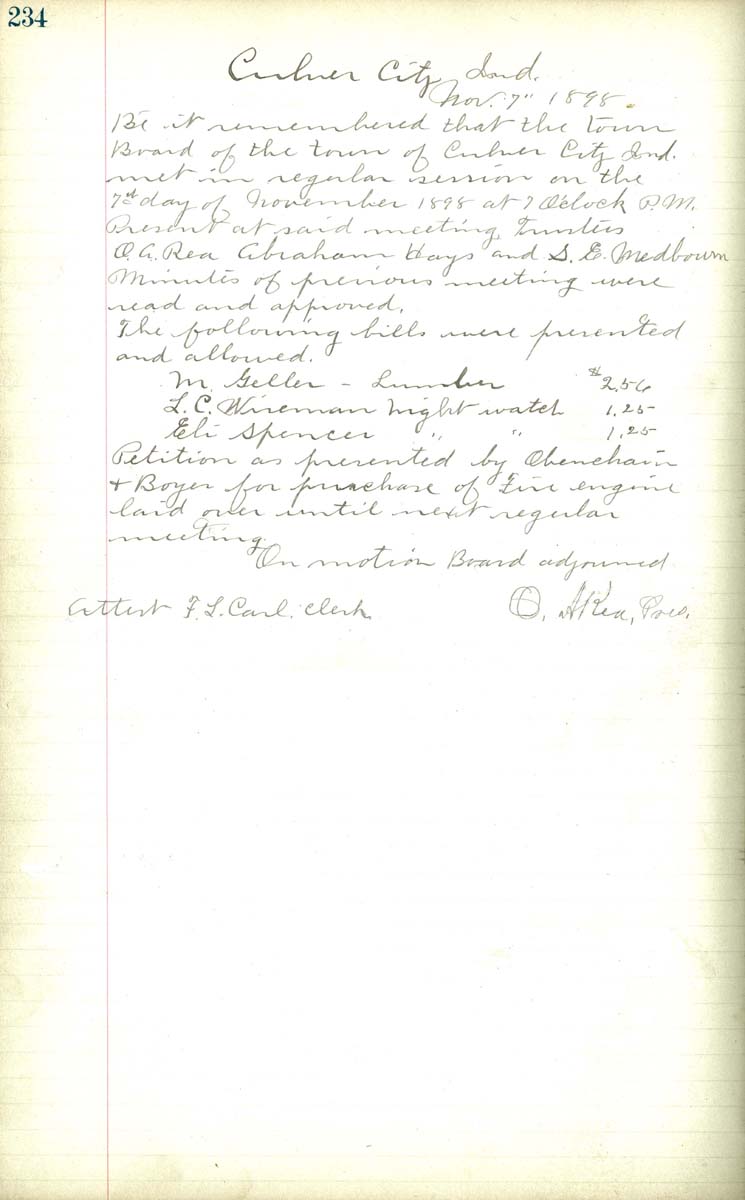 234
Culver City Ind.
Nov. 7" 1898.
Be it remembered that the town
Board of the town of Culver City Ind.
met in regular session on the
7th day of November 1898 at 7 O'clock P.M.
Present at said meeting, Trustees
O. A. Rea Abraham Hays and S. E. Medbourn
Minutes of previous meeting were
read and approved.
The following bills were presented
and allowed.
M. Geller - Lumber $2.56
L. C. Wiseman night watch 1.25
Eli Spencer " " 1.25
Petition as presented by Obenchain
& Boyer for purchase of Fire engine
laid over until next regular
meeting.
On motion Board adjourned
Attest F. L. Carl. Clerk. O. A Rea, Pres.